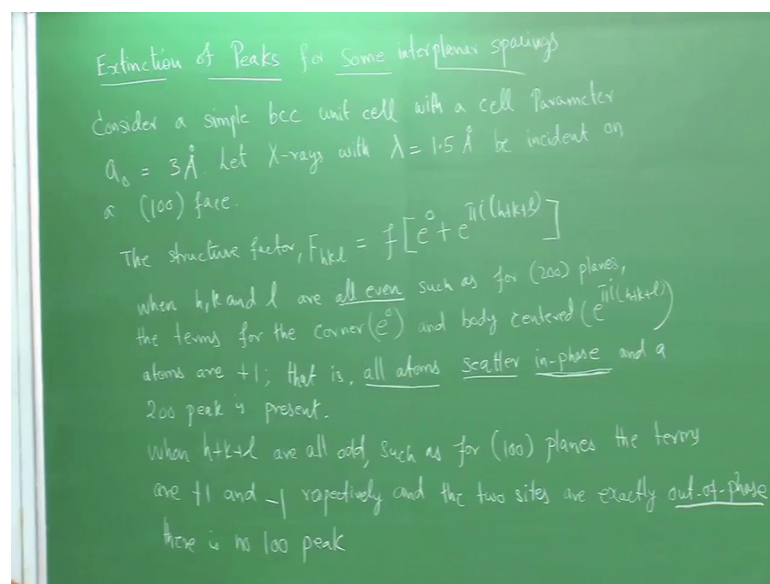 Extinction of Peaks for Some interplaner spacings
Consider a simple bcc unit cell with a cell Parameter
a₀ = 3 Å. Let X-rays with λ = 1.5 Å be incident on
a (100) face.
The structure factor, F_hkl = f[e⁰ + e^πi(h+k+l)]
when h, k and l are all even such as for (200) planes,
the terms for the corner (e⁰) and body centered (e^πi(h+k+l))
atoms are +1; that is, all atoms scatter in-phase and a
200 peak is present.
When h+k+l are all odd, such as for (100) planes the terms
are +1 and -1 rspectively and the two sites are exactly out-of-phase
there is no 100 peak